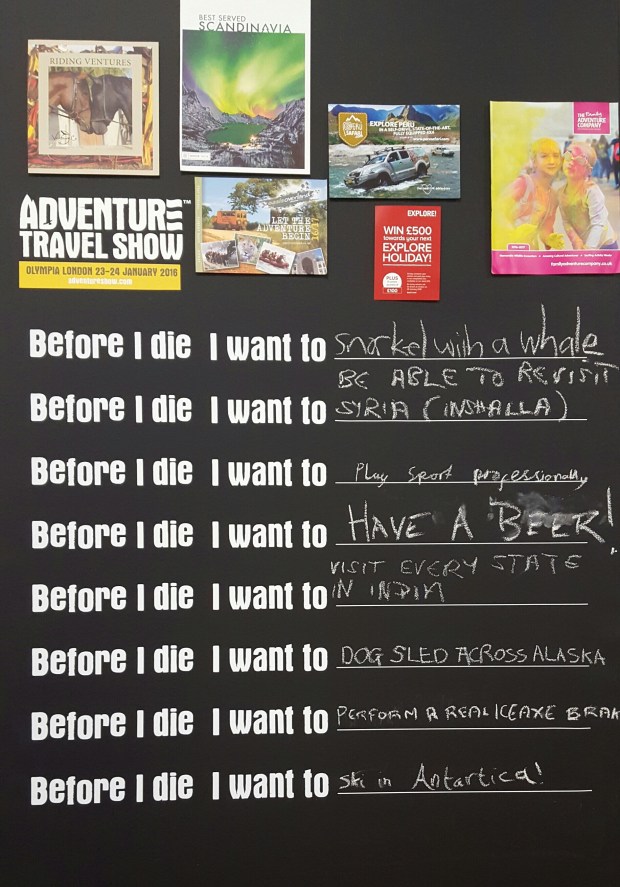 RIDING VENTURES
BEST SERVED
SCANDINAVIA
EXPLORE PERU
IN A SELF-DRIVE, STATE-OF-THE-ART,
FULLY EQUIPPED 4X4
THE Family
ADVENTURE
COMPANY
ADVENTURE™
TRAVEL SHOW
OLYMPIA LONDON 23-24 JANUARY 2016
adventureshow.com
LET THE
ADVENTURE
BEGIN
EXPLORE!
WIN £500
towards your next
EXPLORE
HOLIDAY!
PLUS
£100
familyadventurecompany.co.uk
Before I die I want to snorkel with a whale
BE ABLE TO REVISIT
Before I die I want to SYRIA (INSHALLA)
Before I die I want to Play sport professionally
Before I die I want to HAVE A BEER!
VISIT EVERY STATE
Before I die I want to IN INDIA
Before I die I want to DOG SLED ACROSS ALASKA
Before I die I want to PERFORM A REAL ICEAXE BRAK
Before I die I want to Ski in Antartica!